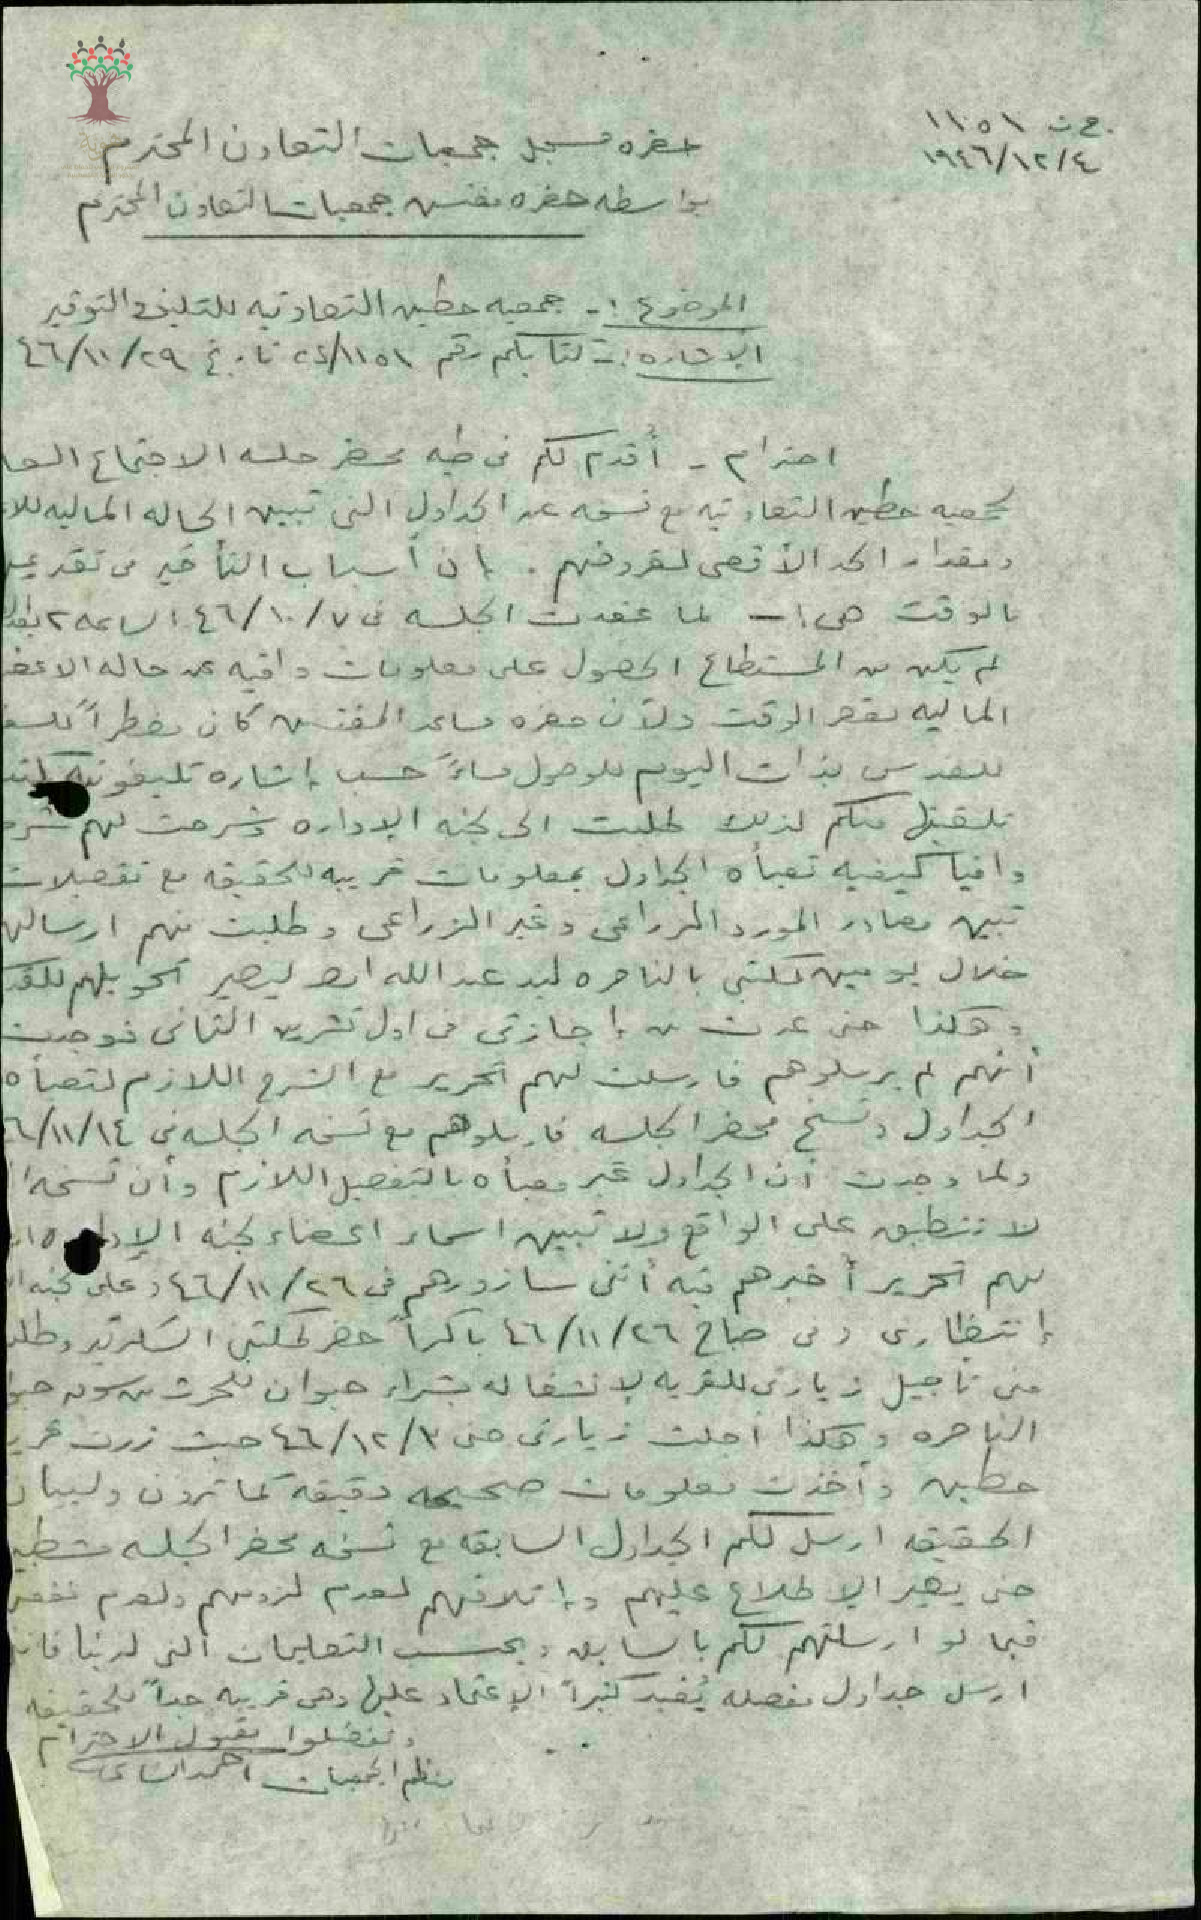 ج ت ١١٥١
١٩٤٦/١٢/٤
حضره مسجل جمعيات التعاون المحترم
بواسطه حضره مفتش جمعيات التعاون المحترم
الموضوع :- جمعيه حطين التعاونيه للتسليف والتوفير
الإشاره :- كتابكم رقم ٢٤/١١٥١ تاريخ ٤٦/١١/٢٩
احترام - أقدم لكم في طيه محضر جلسه الاجتماع
لجمعيه حطين التعاونيه مع نسخه عن الجداول التي تبين الحاله الماليه
ومقدار الحد الأقصى لقروضهم . إن أسباب التأخير من
بالوقت هي :- لما عقدت الجلسه في ٤٦/١٠/٧ الساعه ٢
لم يكن من المستطاع الحصول على معلومات وافيه عن حاله
الماليه لقصر الوقت ولأن حضره مساعد المفتش كان مضطراً
للقدس بذات اليوم للوصول مساءً حسب إشاره تليفونيه
منكم لذلك طلبت الى لجنه الإداره وشرحت لهم
وافيا كيفيه تعبأه الجداول بمعلومات قريبه للحقيقه مع تفصيلات
تبين مصادر المورد الزراعي وغير الزراعي وطلبت منهم
خلال يومين لمكتبي بالناصره ليد عبد الله ليصير تحويلهم
وهكذا حتى عدت من إجازتي في اول تشرين الثاني فوجدت
أنهم لم يرسلوهم فارسلت لهم تحرير مع الشرح اللازم لتعبأه
الجداول ونسخ محضر الجلسه فارسلوهم مع نسخه الجلسه في ٦/١١/١٤
ولما وجدت أن الجداول غير معبأه بالتفصيل اللازم وأن
لا تنطبق على الواقع ولا تبين اسماء اعضاء لجنه
لهم تحرير أخبرهم فيه أنني سازورهم في ٤٦/١١/٢٦ وعلى لجنه
إنتظاري وفي صباح ٤٦/١١/٢٦ باكراً حضر لمكتبي السكرتير
مني تاجيل زيارتي للقريه لإنشغاله بشراء حيوان للحرث من سوق
الناصره وهكذا اجلت زيارتي حتى ٤٦/١٢/٣ حيث زرت
حطين وأخذت معلومات صحيحه دقيقه كما ترون
الحقيقه ارسل لكم الجداول السابقه مع نسخه محضر الجلسه
حتى يصير الإطلاع عليهم وإتلافهم لعدم لزومهم ولعدم
فيما لو ارسلتهم لكم بالسابق وبحسب التعليمات التي لدينا
ارسل جداول مفصله يُفيد كثيراً الإعتماد عليها وهي قريبه جداً للحقيقه
وتفضلوا بقبول الاحترام
منظم الجمعيات